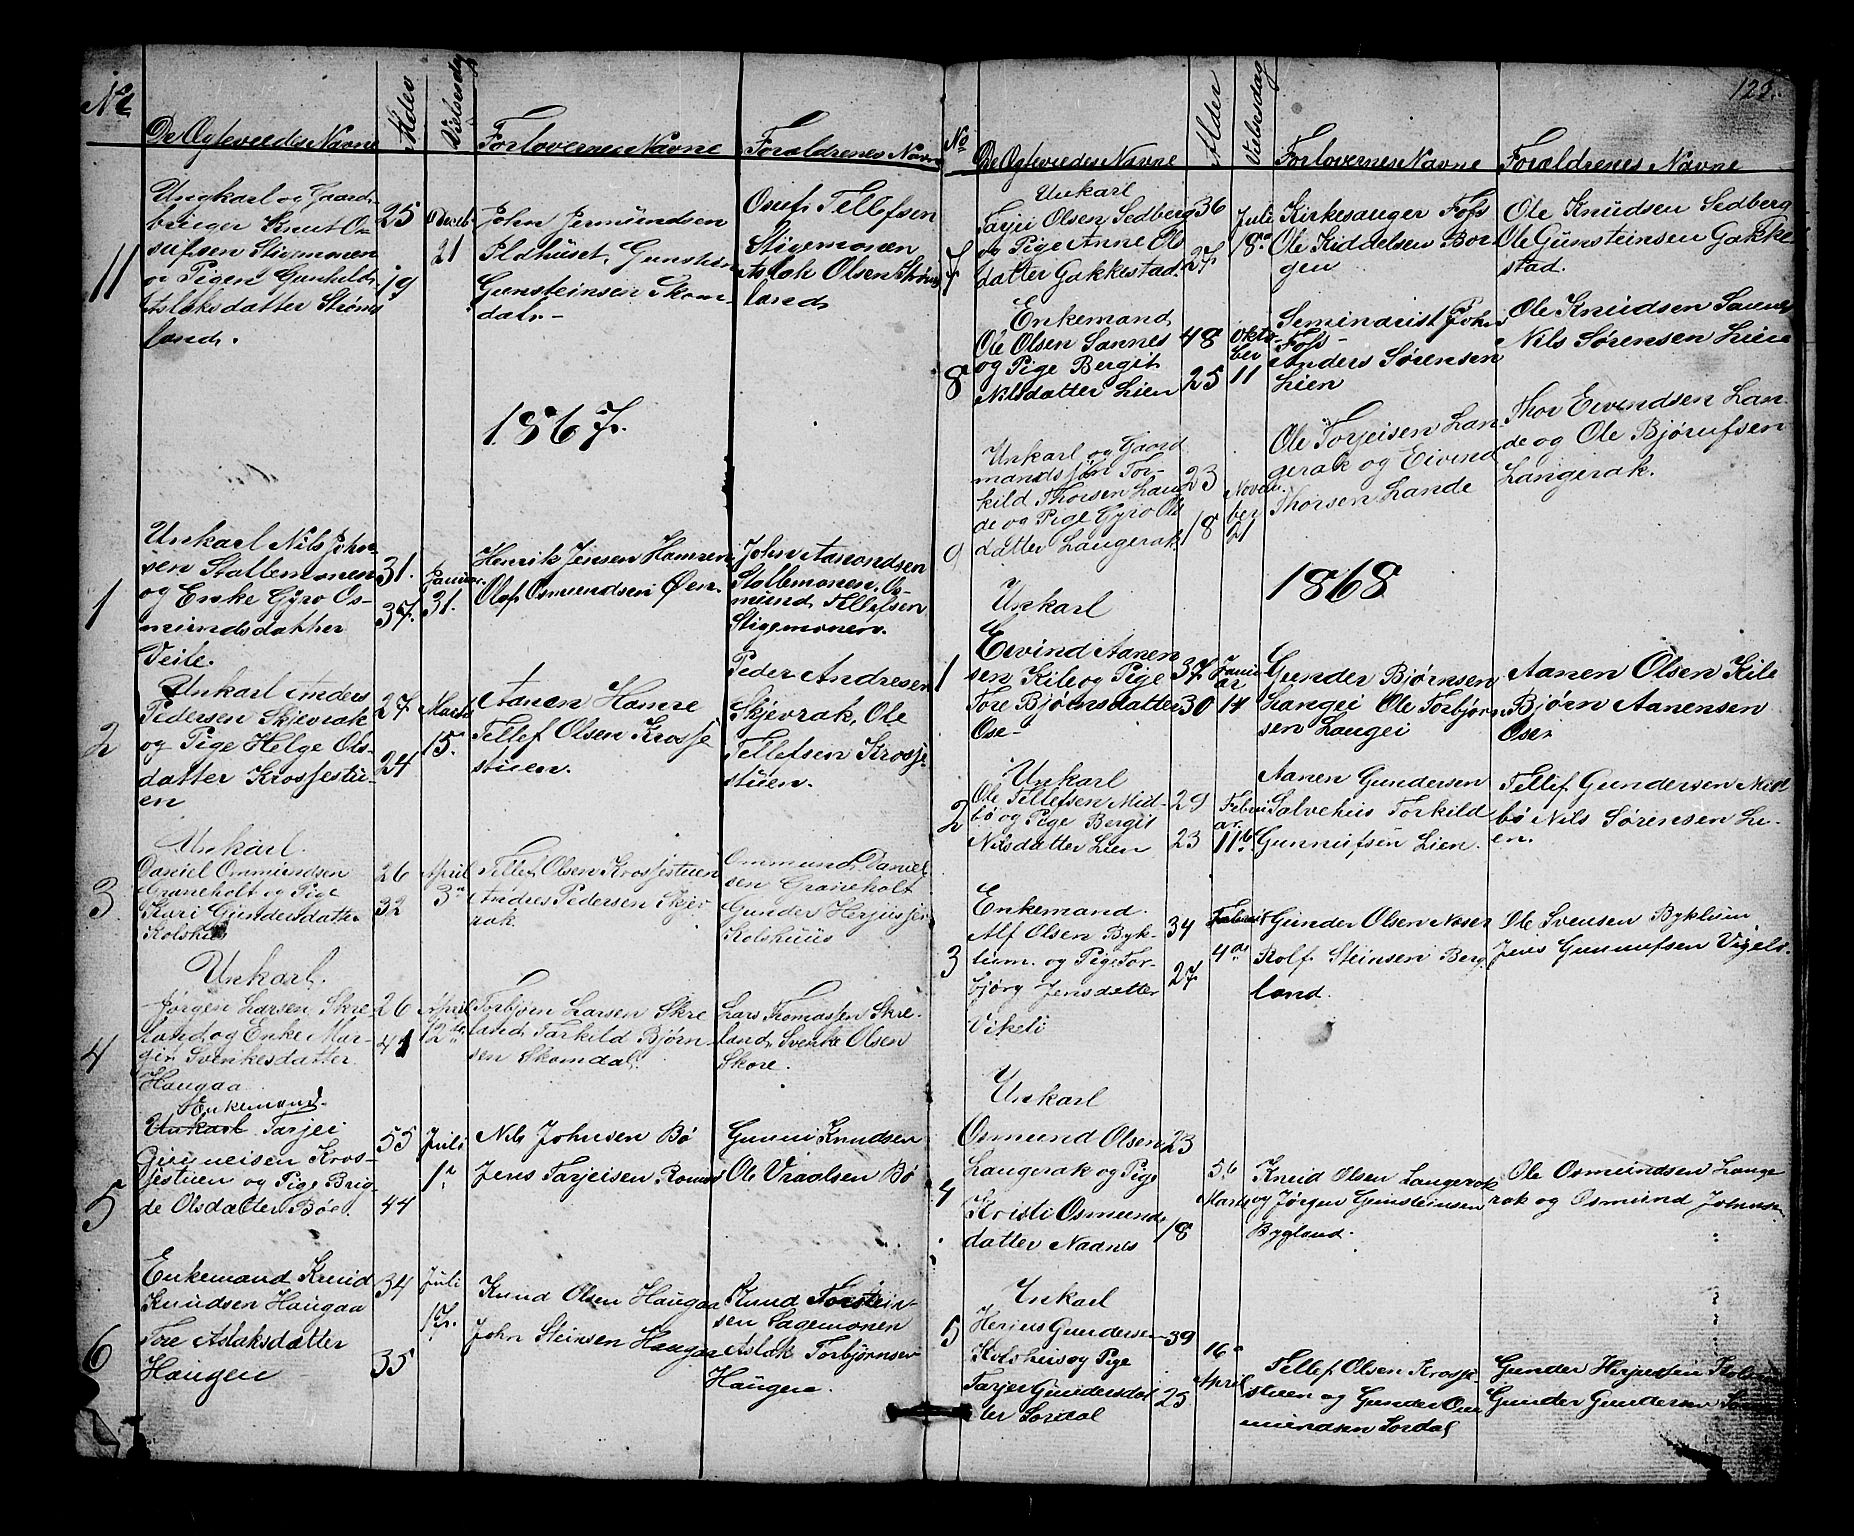 No
De Egteviedes Navne
Alder
Vielsesdag
Forlovernes Navne
Forældrenes Navne
11
Ungkarl og Gaard-
bruger Knut O-
sufsen Stivemonen
og Pigen Gunhild
Aslaksdatter Strøms
land.
25
19
Decb.
21
John Jermundsen
Ildhuset, Gunstein
Gunsteinsen Skom-
dal.-
Osuf Tellefsen
Stigemonen
Aslak Olsen Strøms
land.
1867.
1
Unkarl Nils John
sen Stallemonen
og Enke Gyro Os-
mundsdatter
Veile.
31.
37.
Januar.
31.
Henrik Jensen Hamren
Olaf Osmundsen Øen.
John Aamondsen
Stallemonen, Os-
mund Tellefsen
Stigemonen.
2
Unkarl Anders
Pedersen Skjevrak
og Pige Helge Ols-
datter Krosfestu-
en
27
24
Marts
15.
Aanen Hamre
Tellef Olsen Krosje
stuen.
Peder Andresen
Skjevrak, Ole
Tellefsen Krosje
stuen.
3
Unkarl.
Daniel Ommundsen
Graneholt og Pige
Kari Gundersdatter
Kolshus
26
32
April
3
Tellef Olsen Krosjestuen
Andres Pedersen Skjev
rak.
Ommund Daniel
sen Graneholt
Gunder Herjussen
Kolshuus
4
Unkarl.
Jørgen Larsen Skre
land og Enke Mar-
git Svenkesdatter
Haugaa
26
41
April
12te
Torbjørn Larsen Skre
land, Tarkild Bjørn-
sen Skomdal.
Lars Thomassen Skre-
land, Svenke Olsen
Skore.
5
Enkemand.
Unkarl Tarjei
Gunneisen Kros-
jestuen og Pige Brig-
de Olsdatter Bøe.
55
44
Juli
1
Nils Johnsen Bø
Jens Tarjeisen Romnes
Gunni Knudsen
Ole Vraalsen Bø
6
Enkemand Knud
Knudsen Haugaa
Tore Aslaksdatter
Haugen
34
35
Juli
17.
Knud Olsen Haugaa
John Steinsen Haugaa
Knud Torstein-
sen Lagemonen
Aslak Torbjørnsen
Haugen.
123.
No
De Egteviedes Navne
Alder
Vielsesdag
Forlovernes Navne
Forældrenes Navne
7
Unkarl
Tarjei Olsen Sedberg
og Pige Anne Ols
datter Gakkestad.
36
27.
Juli
18
Kirkesanger Fofs
Ole Kiddelsen Bor
gen
Ole Knudsen Sedberg
Ole Gunsteinsen Gakke
stad.
8
Enkemand
Ole Olsen Sannes
og Pige Bergit
Nilsdatter Lien
48
25
Okto-
ber
11
Seminarist John
Fofs-
Anders Sørensen
Lien
Ole Knudsen Sannes
Nils Sørensen Lien
9
Unkarl og Gaard
mandssøn Tor-
kild Thorsen Lan
de og Pige Gyro Ols
datter Langerak.
23
18
Novem.
ber
21
Ole Torjeisen Lan-
gerak og Eivind
Thorsen Lande
Thor Eivindsen Lan-
de og Ole Bjørufsen
Langerak.
1868
1
Unkarl
Eivind Aanen
sen Kile og Pige
Tore Bjørnsdatter
Ose-
37.
30
Janu
ar
14
Gunder Bjørnsen
Langei Ole Torbjørn
sen Langei
Aanen Olsen Kile
Bjørn Aanensen
Ose
2
Unkarl
Ole Tellefsen Mid-
bø og Pige Bergit
Nilsdatter Lien
29
23
Febru
ar.
11te
Aanen Gundersen
Salvehus Torkild
Gunnufsen Lien.
Tellef Gundersen Mid
bø Nils Sørensen Li-
en.
3
Enkemand.
Alf Olsen Byk-
lum. og Pige Tor-
bjørg Jensdatter
Vikeli
34
27.
4
Gunder Olsen Neset
Rolf Steinsen Berg.
land.
Ole Svensen Byklum
Jens Gunnufsen Vigeli.
4
Unkarl
Osmund Olsen
Langerak og Pige
Kristi Osmunds
datter Nadnes
23
18
5te
Marts
Knud Olsen Langerak
og Jørgen Gunsteinsen
Bygland.
Ole Osmundsen Lange
rak og Osmund Johnsen
5
Unkarl
Herjus Gundersen
Kolshus og Pige
Tarjer Gundersdat
ter Sordal
39
25
16
April
Tellef Olsen Krosje-
stuen og Gunder Om
mundsen Sordal
Gunder Herjussen Kols
Gunder Gundersen